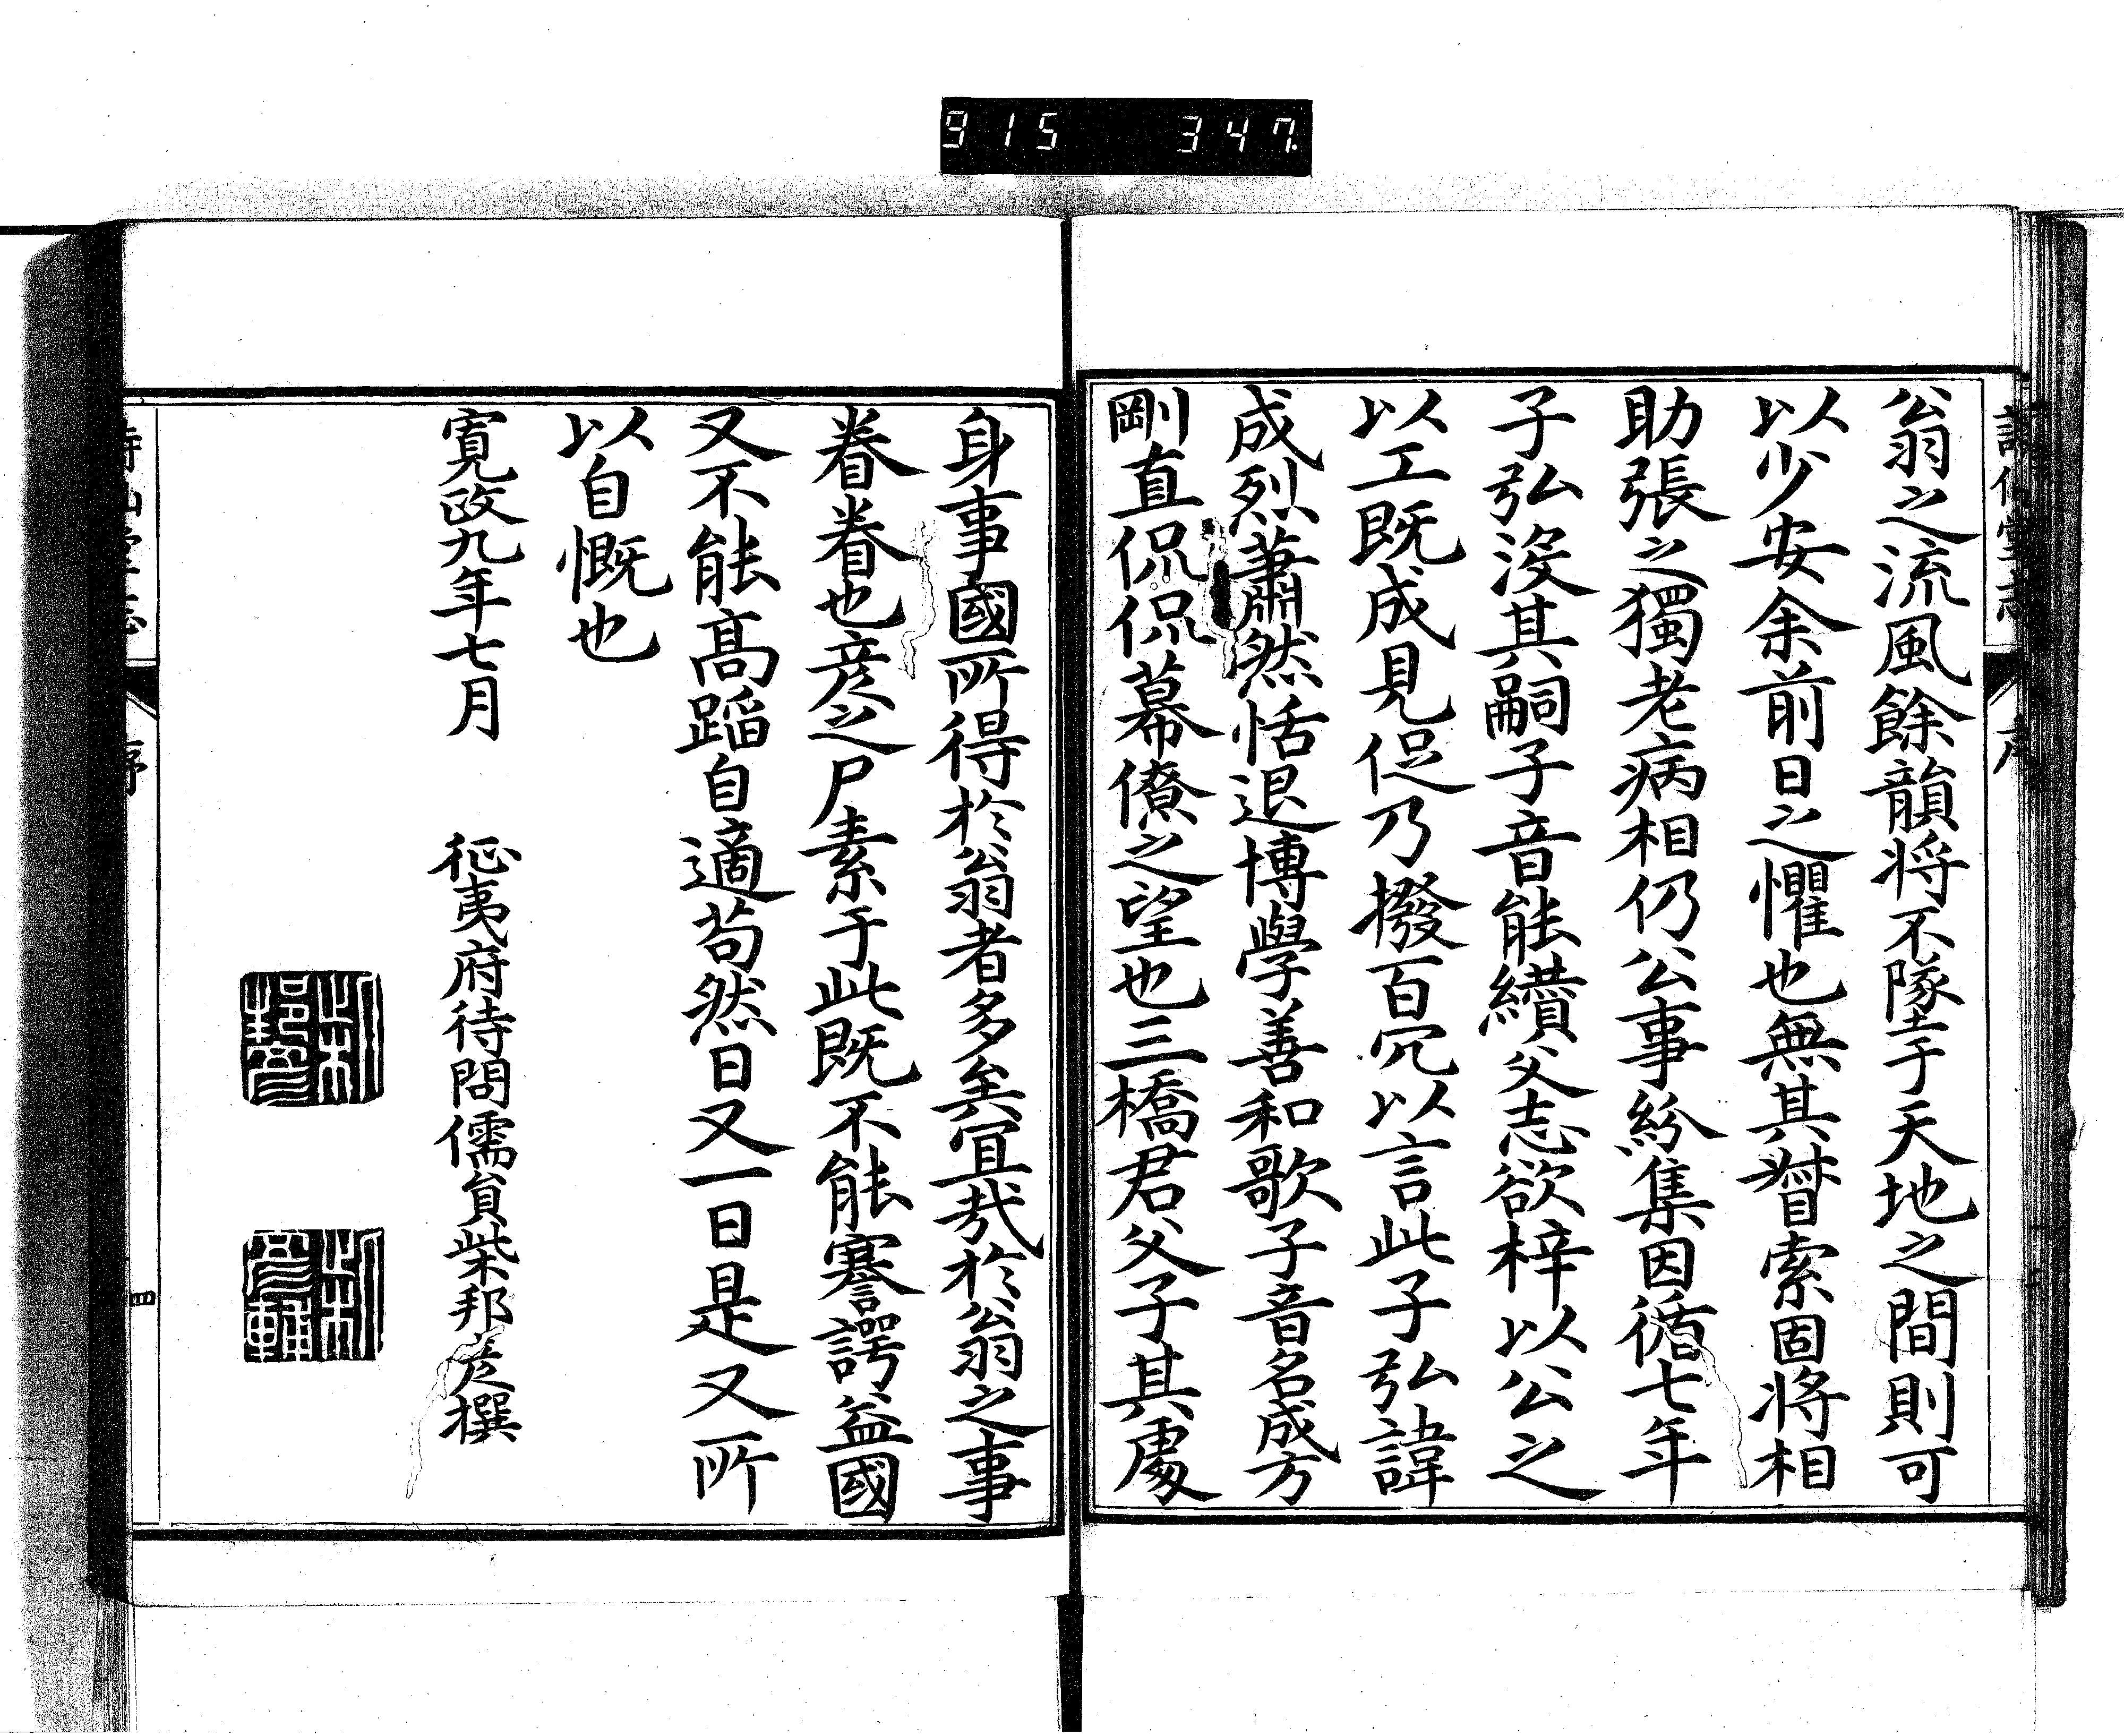 915 347.
詩仙堂志
序
翁之流風餘韻将不隊于天地之間則可
以少安余前日之懼也無其嘗索固将相
助張之獨老病相仍公事紛集因循七年
子弘沒其嗣子音能纘父志欲梓以公之
以工既成見促乃撥百宂以言此子弘諱
成烈蕭然恬退博學善和歌子音名成方
剛直侃侃幕僚之望也三橋君父子其處
身事國所得於翁者多矣宜哉於翁之事
眷眷也彦之尸素于此既不能謇諤益國
又不能髙蹈自適苟然日又一日是又所
以自慨也
寛政九年七月 征夷府待問儒貟柴邦彦撰
詩仙堂志
序
四